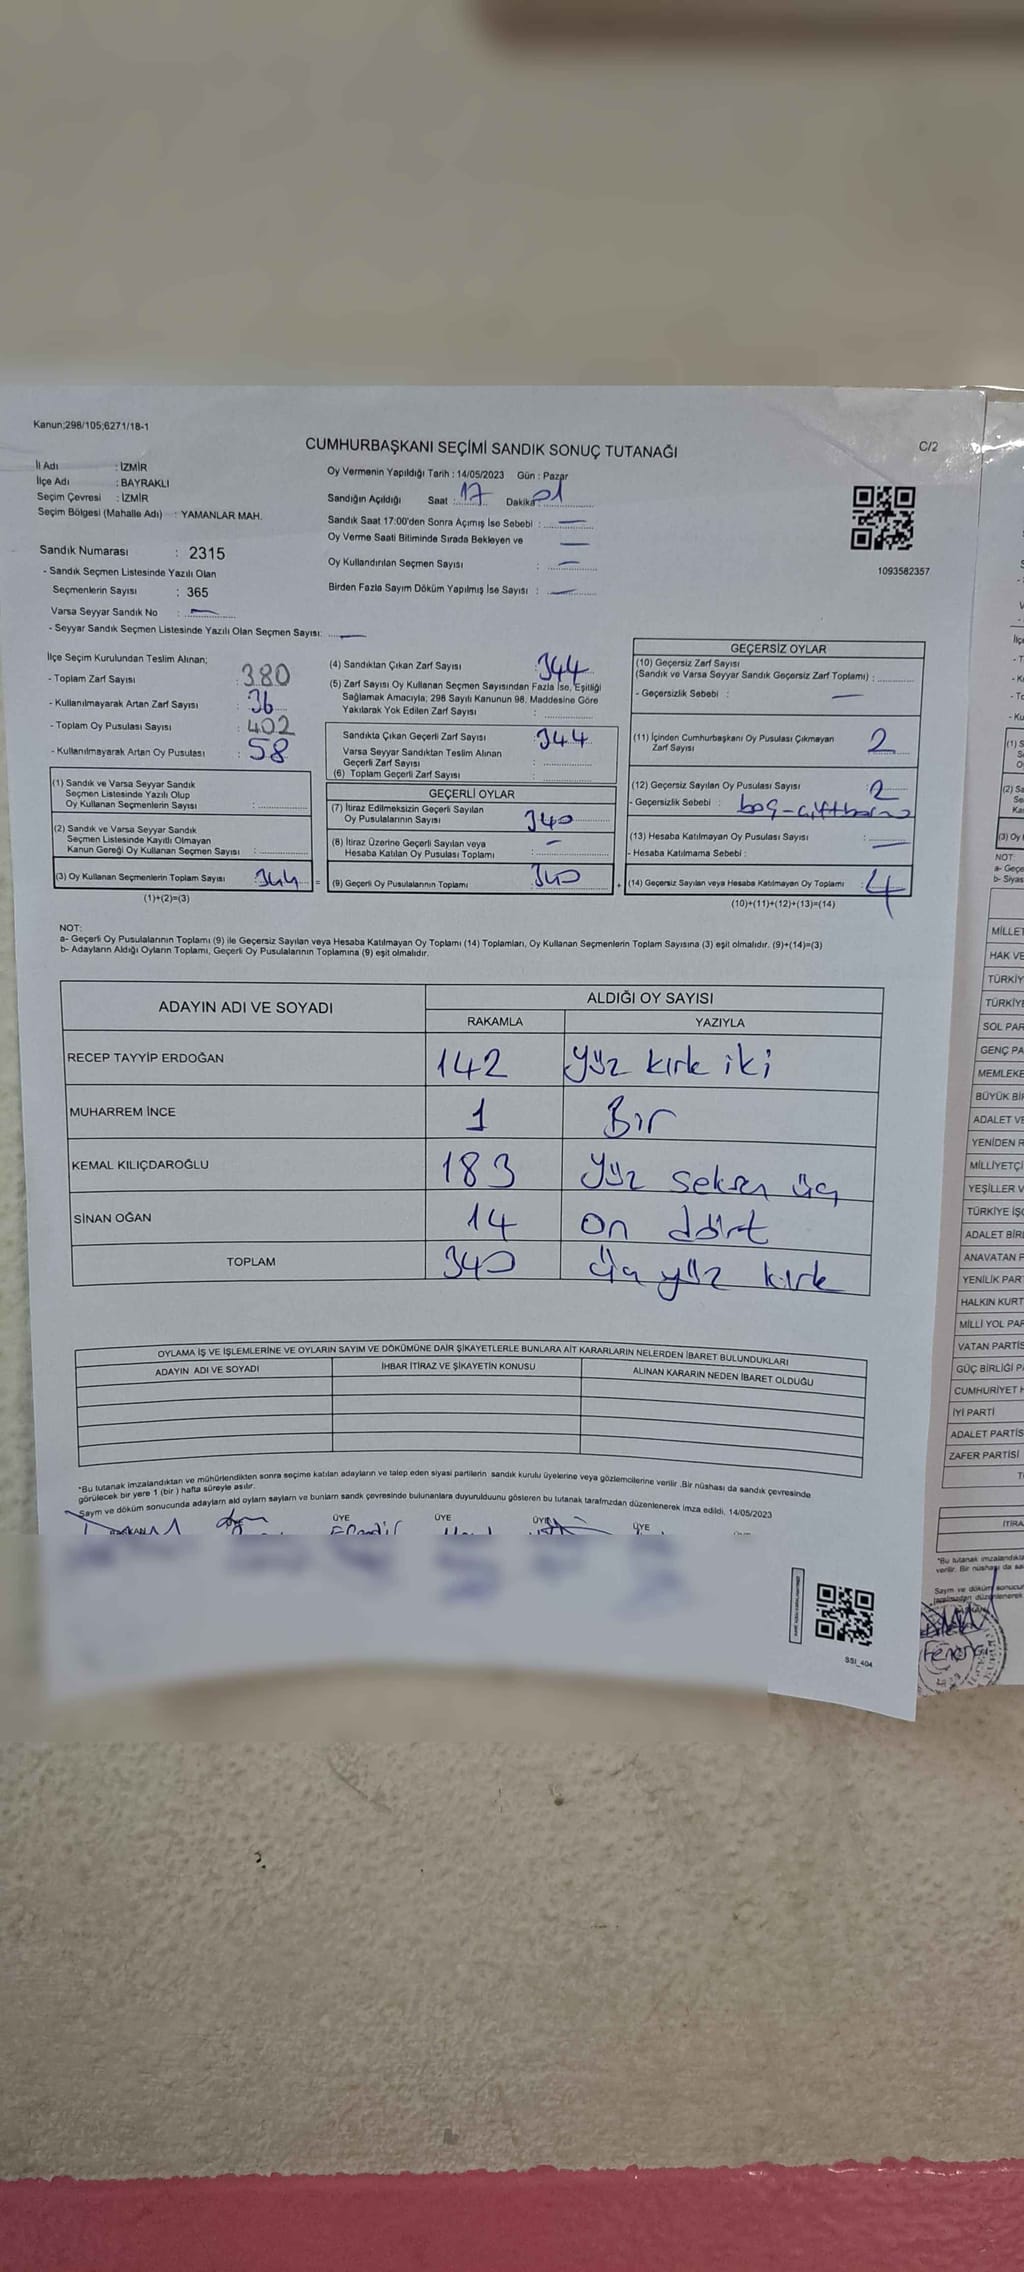 Kanun;298/105;6271/18-1
CUMHURBAŞKANI SEÇİMİ SANDIK SONUÇ TUTANAĞI
C/2
İl Adı : İZMİR
İlçe Adı : BAYRAKLI
Seçim Çevresi : İZMİR
Seçim Bölgesi (Mahalle Adı) : YAMANLAR MAH.
Sandık Numarası : 2315
- Sandık Seçmen Listesinde Yazılı Olan
Seçmenlerin Sayısı : 365
Varsa Seyyar Sandık No : —
- Seyyar Sandık Seçmen Listesinde Yazılı Olan Seçmen Sayısı: —
Oy Vermenin Yapıldığı Tarih : 14/05/2023 Gün : Pazar
Sandığın Açıldığı Saat : 17 Dakika 01
Sandık Saat 17:00'den Sonra Açımış İse Sebebi : —
Oy Verme Saati Bitiminde Sırada Bekleyen ve —
Oy Kullandırılan Seçmen Sayısı : —
Birden Fazla Sayım Döküm Yapılmış İse Sayısı : —
1093582357
İlçe Seçim Kurulundan Teslim Alınan;
- Toplam Zarf Sayısı : 380
- Kullanılmayarak Artan Zarf Sayısı : 36
- Toplam Oy Pusulası Sayısı : 402
- Kullanılmayarak Artan Oy Pusulası : 58
(1) Sandık ve Varsa Seyyar Sandık
Seçmen Listesinde Yazılı Olup
Oy Kullanan Seçmenlerin Sayısı :
(2) Sandık ve Varsa Seyyar Sandık
Seçmen Listesinde Kayıtlı Olmayan
Kanun Gereği Oy Kullanan Seçmen Sayısı :
(3) Oy Kullanan Seçmenlerin Toplam Sayısı : 344 =
(1)+(2)=(3)
(4) Sandıktan Çıkan Zarf Sayısı : 344
(5) Zarf Sayısı Oy Kullanan Seçmen Sayısından Fazla İse, Eşitliği
Sağlamak Amacıyla; 298 Sayılı Kanunun 98. Maddesine Göre
Yakılarak Yok Edilen Zarf Sayısı :
Sandıkta Çıkan Geçerli Zarf Sayısı : 344
Varsa Seyyar Sandıktan Teslim Alınan
Geçerli Zarf Sayısı :
(6) Toplam Geçerli Zarf Sayısı :
GEÇERLİ OYLAR
(7) İtiraz Edilmeksizin Geçerli Sayılan
Oy Pusulalarının Sayısı : 340
(8) İtiraz Üzerine Geçerli Sayılan veya
Hesaba Katılan Oy Pusulası Toplamı : —
(9) Geçerli Oy Pusulalarının Toplamı : 340 +
GEÇERSİZ OYLAR
(10) Geçersiz Zarf Sayısı
(Sandık ve Varsa Seyyar Sandık Geçersiz Zarf Toplamı) :
- Geçersizlik Sebebi : —
(11) İçinden Cumhurbaşkanı Oy Pusulası Çıkmayan
Zarf Sayısı : 2
(12) Geçersiz Sayılan Oy Pusulası Sayısı : 2
- Geçersizlik Sebebi : boş-çift
(13) Hesaba Katılmayan Oy Pusulası Sayısı : —
- Hesaba Katılmama Sebebi :
(14) Geçersiz Sayılan veya Hesaba Katılmayan Oy Toplamı : 4
(10)+(11)+(12)+(13)=(14)
NOT:
a- Geçerli Oy Pusulalarının Toplamı (9) ile Geçersiz Sayılan veya Hesaba Katılmayan Oy Toplamı (14) Toplamları, Oy Kullanan Seçmenlerin Toplam Sayısına (3) eşit olmalıdır. (9)+(14)=(3)
b- Adayların Aldığı Oyların Toplamı, Geçerli Oy Pusulalarının Toplamına (9) eşit olmalıdır.
ADAYIN ADI VE SOYADI
ALDIĞI OY SAYISI
RAKAMLA YAZIYLA
RECEP TAYYİP ERDOĞAN 142 Yüz kırk iki
MUHARREM İNCE 1 Bir
KEMAL KILIÇDAROĞLU 183 Yüz seksen üç
SİNAN OĞAN 14 on dört
TOPLAM 340 Üç yüz kırk
OYLAMA İŞ VE İŞLEMLERİNE VE OYLARIN SAYIM VE DÖKÜMÜNE DAİR ŞİKAYETLERLE BUNLARA AİT KARARLARIN NELERDEN İBARET BULUNDUKLARI
ADAYIN ADI VE SOYADI İHBAR İTİRAZ VE ŞİKAYETİN KONUSU ALINAN KARARIN NEDEN İBARET OLDUĞU
*Bu tutanak imzalandıktan ve mühürlendikten sonra seçime katılan adayların ve talep eden siyasi partilerin sandık kurulu üyelerine veya gözlemcilerine verilir .Bir nüshası da sandık çevresinde
görülecek bir yere 1 (bir ) hafta süreyle asılır.
Sayım ve döküm sonucunda adayların ald oyların sayların ve bunların sandk çevresinde bulunanlara duyurulduunu gösteren bu tutanak tarafmzdan düzenlenerek imza edildi. 14/05/2023
BAŞKAN ÜYE ÜYE ÜYE ÜYE
SSI_404
MİLLET
HAK VE
TÜRKİY
TÜRKİYE
SOL PAR
GENÇ PA
MEMLEKE
BÜYÜK Bİ
ADALET VE
YENİDEN R
MİLLİYETÇİ
YEŞİLLER V
TÜRKİYE İŞÇ
ADALET BİRL
ANAVATAN P
YENİLİK PAR
HALKIN KURT
MİLLİ YOL PAR
VATAN PARTİS
GÜÇ BİRLİĞİ P
CUMHURİYET H
İYİ PARTİ
ADALET PARTİS
ZAFER PARTİSİ
İTİRA